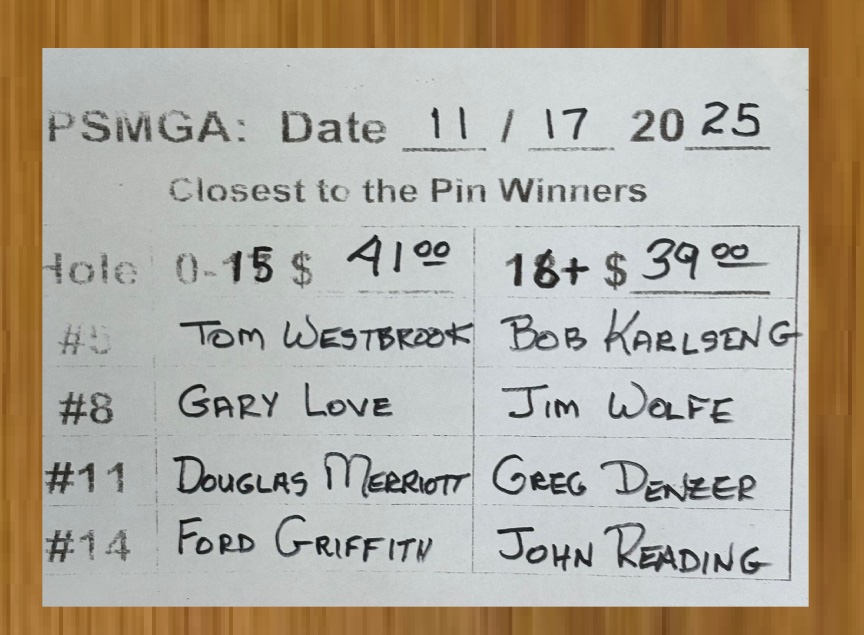 PSMGA: Date 11 / 17 2025
Closest to the Pin Winners
Hole 0-15 $ 41.00 16+ $ 39.00
#5 TOM WESTBROOK BOB KARLSENG
#8 GARY LOVE JIM WOLFE
#11 DOUGLAS MERRIOTT GREG DENZER
#14 FORD GRIFFITH JOHN READING